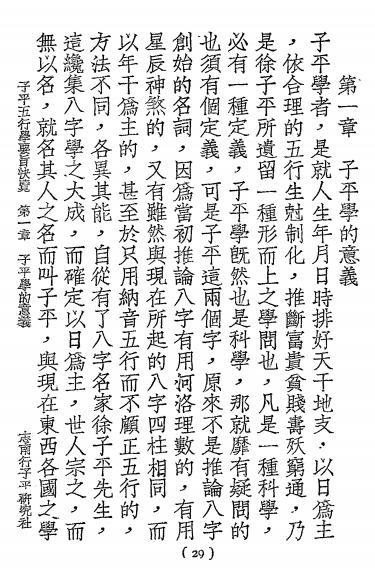 第一章　子平學的意義
子平學者，是就人生年月日時排好天干地支，以日爲主
，依合理的五行生尅制化，推斷富貴貧賤壽殀窮通，乃
是徐子平所遺留一種形而上之學問也，凡是一種科學，
必有一種定義，子平學旣然也是科學，那就靡有疑問的
也須有個定義，可是子平這兩個字，原來不是推論八字
創始的名詞，因爲當初推論八字有用河洛理數的，有用
星辰神煞的，又有雖然與現在所起的八字四柱相同，而
以年干爲主的，甚至於只用納音五行而不顧正五行的，
方法不同，各異其能，自從有了八字名家徐子平先生，
這纔集八字學之大成，而確定以日爲主，世人宗之，而
無以名，就名其人之名而叫子平，與現在東西各國之學
子平五行學要旨詼寶　第一章　子平學的意義
志南行子平研究社
(29)